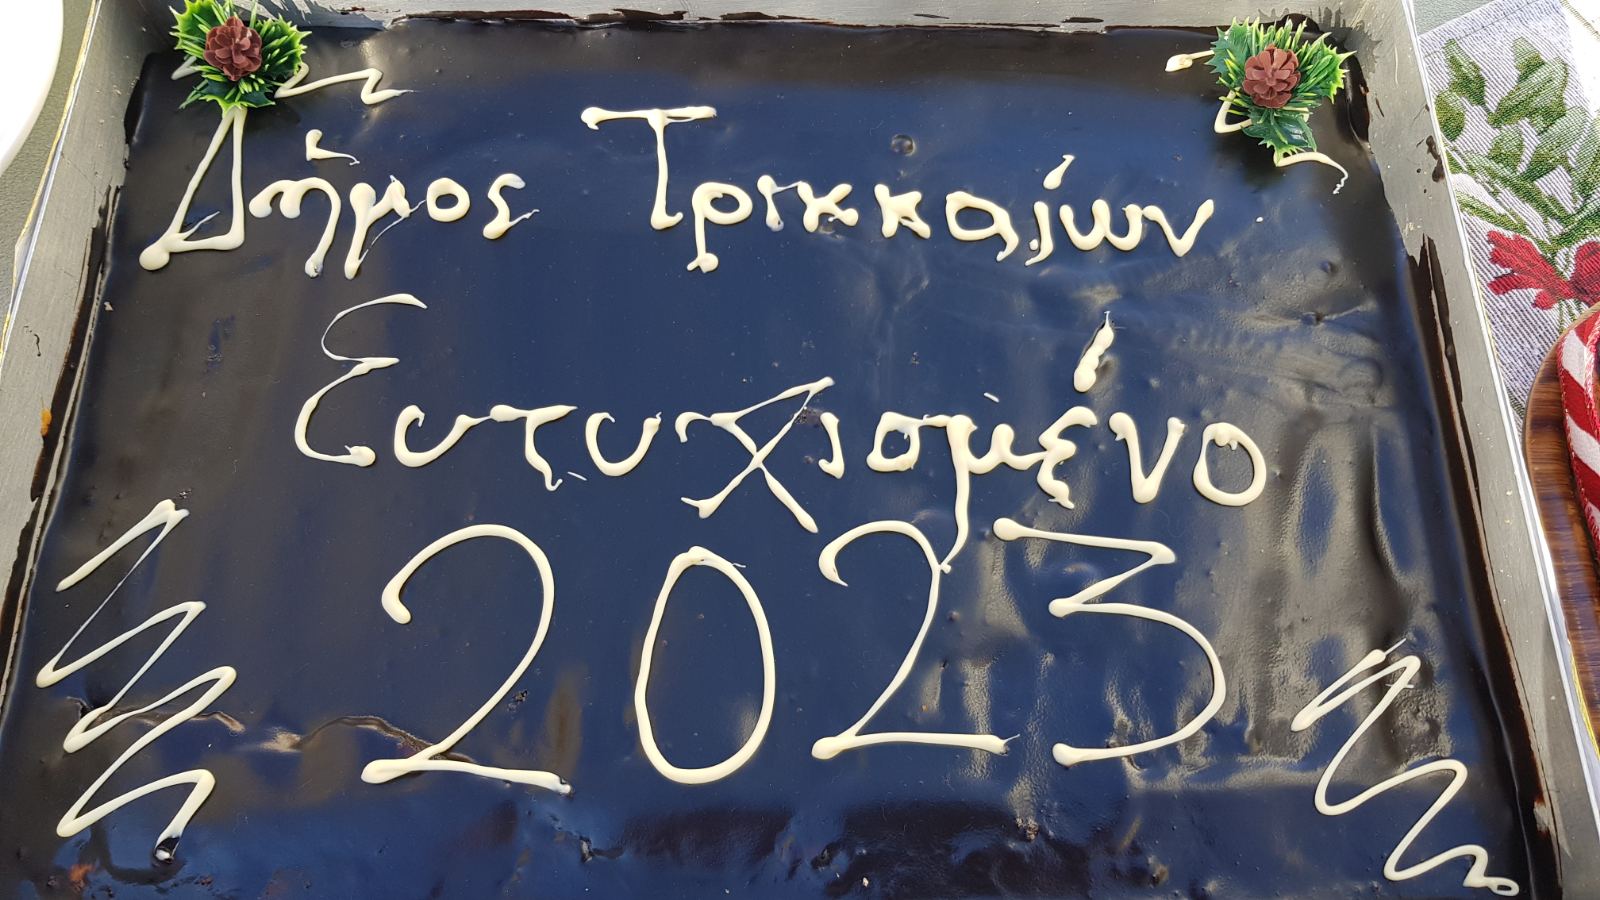 Δήμος Τρικκαίων
Ευτυχισμένο
2023